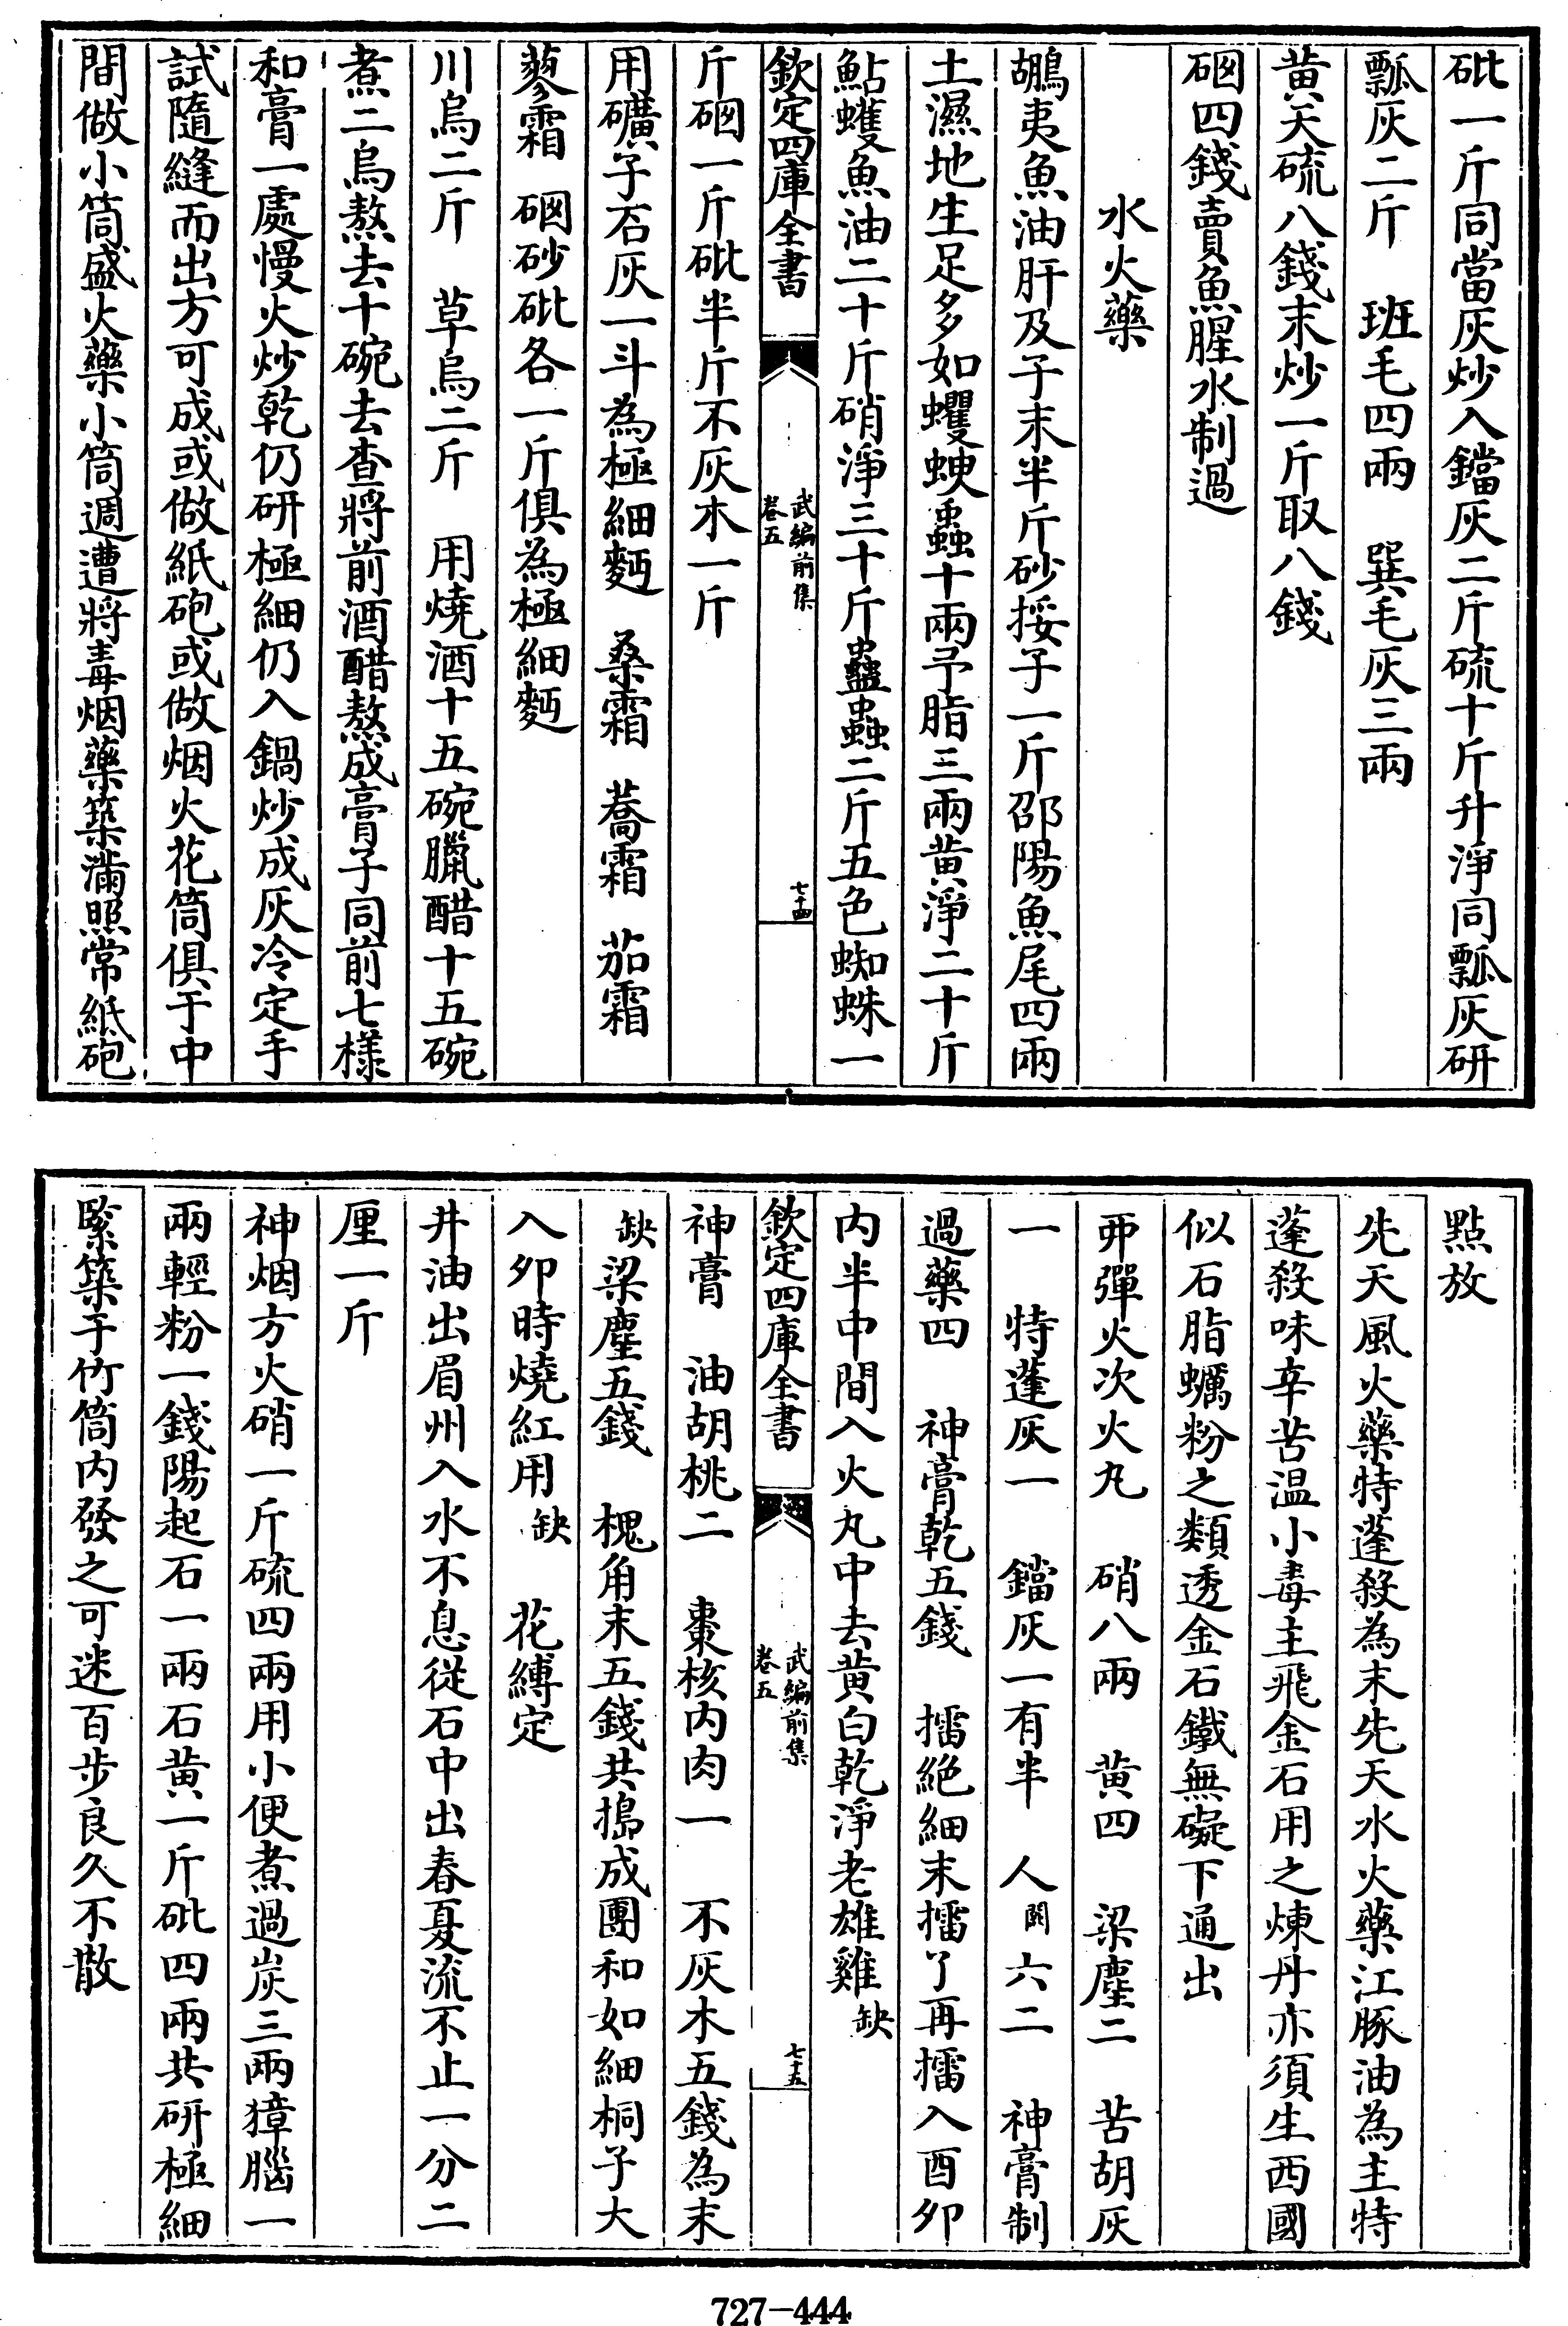 砒一斤同當灰炒入鐺灰二斤硫十斤升淨同瓢灰研
瓢灰二斤　班毛四兩　巽毛灰三兩
黄天硫八錢末炒一斤取八錢
硇四錢賣魚腥水制過
水火藥
鶘夷魚油肝及子末半斤砂挼子一斤邵陽魚尾四兩
土濕地生足多如蠼螋蟲十兩予脂三兩黄淨二十斤
鮎蠖魚油二十斤硝淨三十斤蠱蟲二斤五色蜘蛛一
欽定四庫全書　武編前集　卷五　七十四
斤硇一斤砒半斤不灰木一斤
用礦子石灰一斗為極細麪　桑霜　蕎霜　茄霜
蔘霜　硇砂砒各一斤俱為極細麪
川烏二斤　草烏二斤　用燒酒十五碗臘醋十五碗
煮二烏熬去十碗去查將前酒醋熬成膏子同前七樣
和膏一處慢火炒乾仍研極細仍入鍋炒成灰冷定手
試隨縫而出方可成或做紙砲或做烟火花筒俱于中
間做小筒盛火藥小筒週遭將毒烟藥築滿照常紙砲
點放
先天風火藥特蓬殺為末先天水火藥江豚油為主特
蓬殺味辛苦温小毒主飛金石用之煉丹亦須生西國
似石脂蠣粉之類透金石鐵無礙下通出
丣彈火次火丸　硝八兩　黄四　梁塵二　苦胡灰
一　特蓬灰一　鐺灰一有半　人闕六二　神膏制
過藥四　神膏乾五錢　擂絶細末擂了再擂入酉夘
内半中間入火丸中去黄白乾淨老雄雞缺
欽定四庫全書　武編前集　卷五　七十五
神膏　油胡桃二　棗核内肉一　不灰木五錢為末
缺梁塵五錢　槐角末五錢共搗成團和如細桐子大
入夘時燒紅用缺　花縛定
井油出眉州入水不息從石中出春夏流不止一分二
厘一斤
神烟方火硝一斤硫四兩用小便煮過炭三兩獐腦一
兩輕粉一錢陽起石一兩石黄一斤砒四兩共研極細
緊築于竹筒内發之可迷百步良久不散
727-444